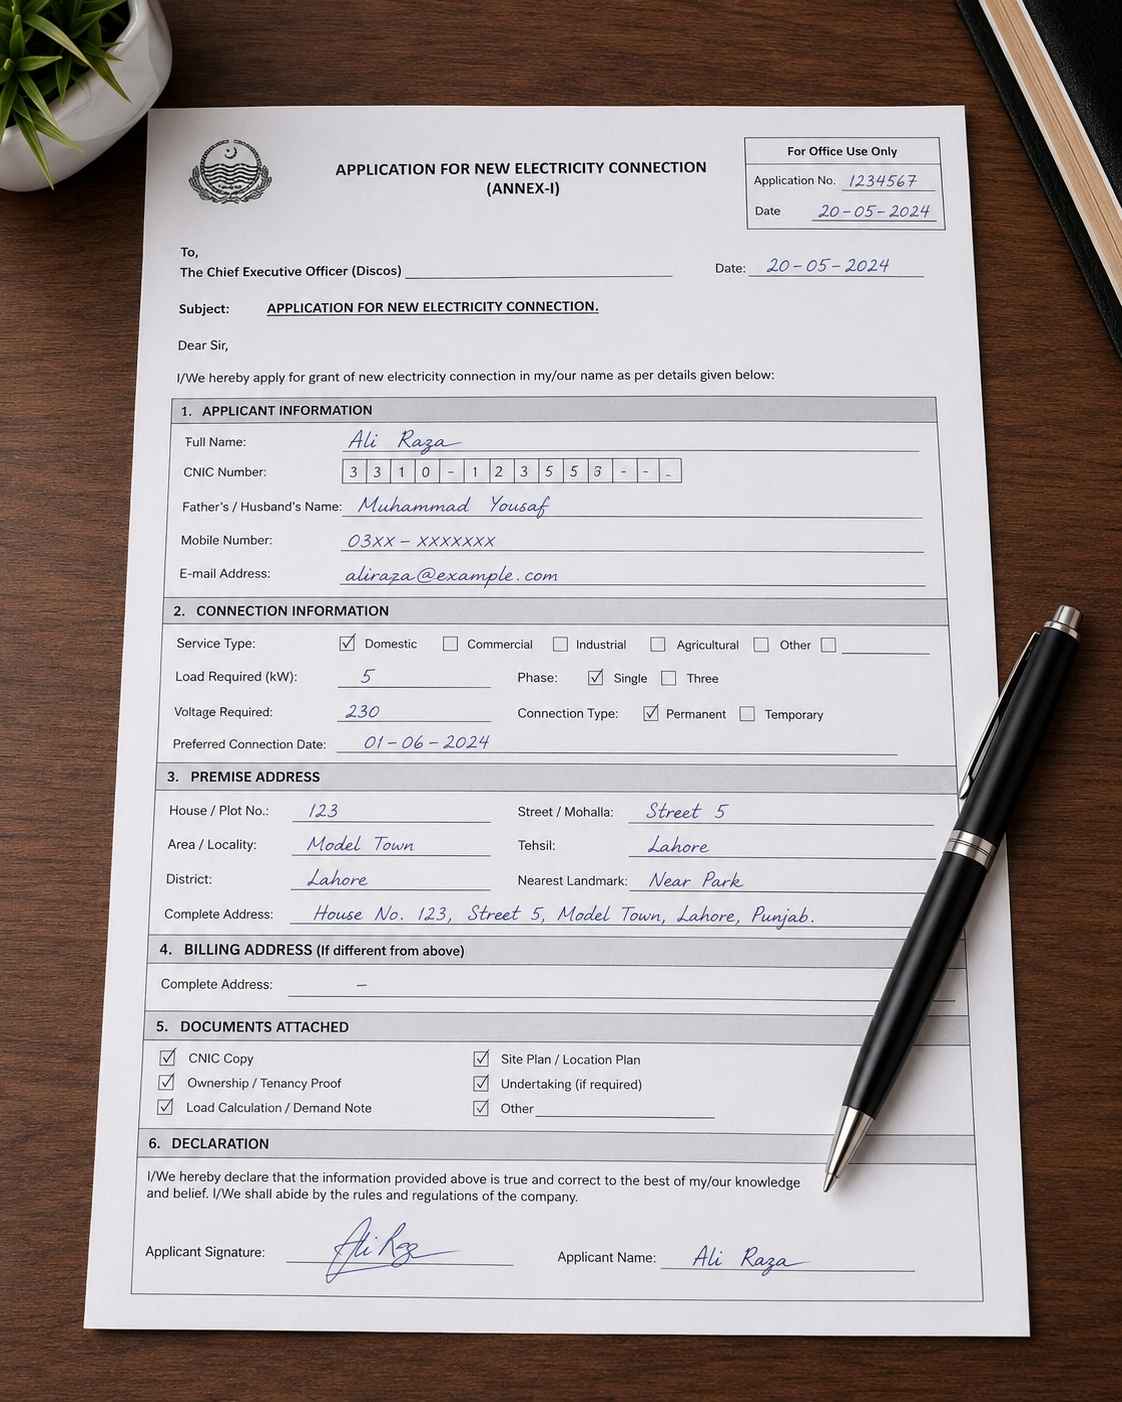 APPLICATION FOR NEW ELECTRICITY CONNECTION
(ANNEX-I)
For Office Use Only
Application No. 1234567
Date 20-05-2024
To,
The Chief Executive Officer (Discos)
Date: 20-05-2024
Subject: APPLICATION FOR NEW ELECTRICITY CONNECTION.
Dear Sir,
I/We hereby apply for grant of new electricity connection in my/our name as per details given below:
1. APPLICANT INFORMATION
Full Name: Ali Raza
CNIC Number: 3310-123558---
Father's / Husband's Name: Muhammad Yousaf
Mobile Number: 03xx-xxxxxxx
E-mail Address: aliraza@example.com
2. CONNECTION INFORMATION
Service Type: ☑ Domestic ☐ Commercial ☐ Industrial ☐ Agricultural ☐ Other ☐
Load Required (kW): 5 Phase: ☑ Single ☐ Three
Voltage Required: 230 Connection Type: ☑ Permanent ☐ Temporary
Preferred Connection Date: 01-06-2024
3. PREMISE ADDRESS
House / Plot No.: 123 Street / Mohalla: Street 5
Area / Locality: Model Town Tehsil: Lahore
District: Lahore Nearest Landmark: Near Park
Complete Address: House No. 123, Street 5, Model Town, Lahore, Punjab.
4. BILLING ADDRESS (If different from above)
Complete Address: –
5. DOCUMENTS ATTACHED
☑ CNIC Copy ☑ Site Plan / Location Plan
☑ Ownership / Tenancy Proof ☑ Undertaking (if required)
☑ Load Calculation / Demand Note ☑ Other
6. DECLARATION
I/We hereby declare that the information provided above is true and correct to the best of my/our knowledge
and belief. I/We shall abide by the rules and regulations of the company.
Applicant Signature: Ali Raza Applicant Name: Ali Raza